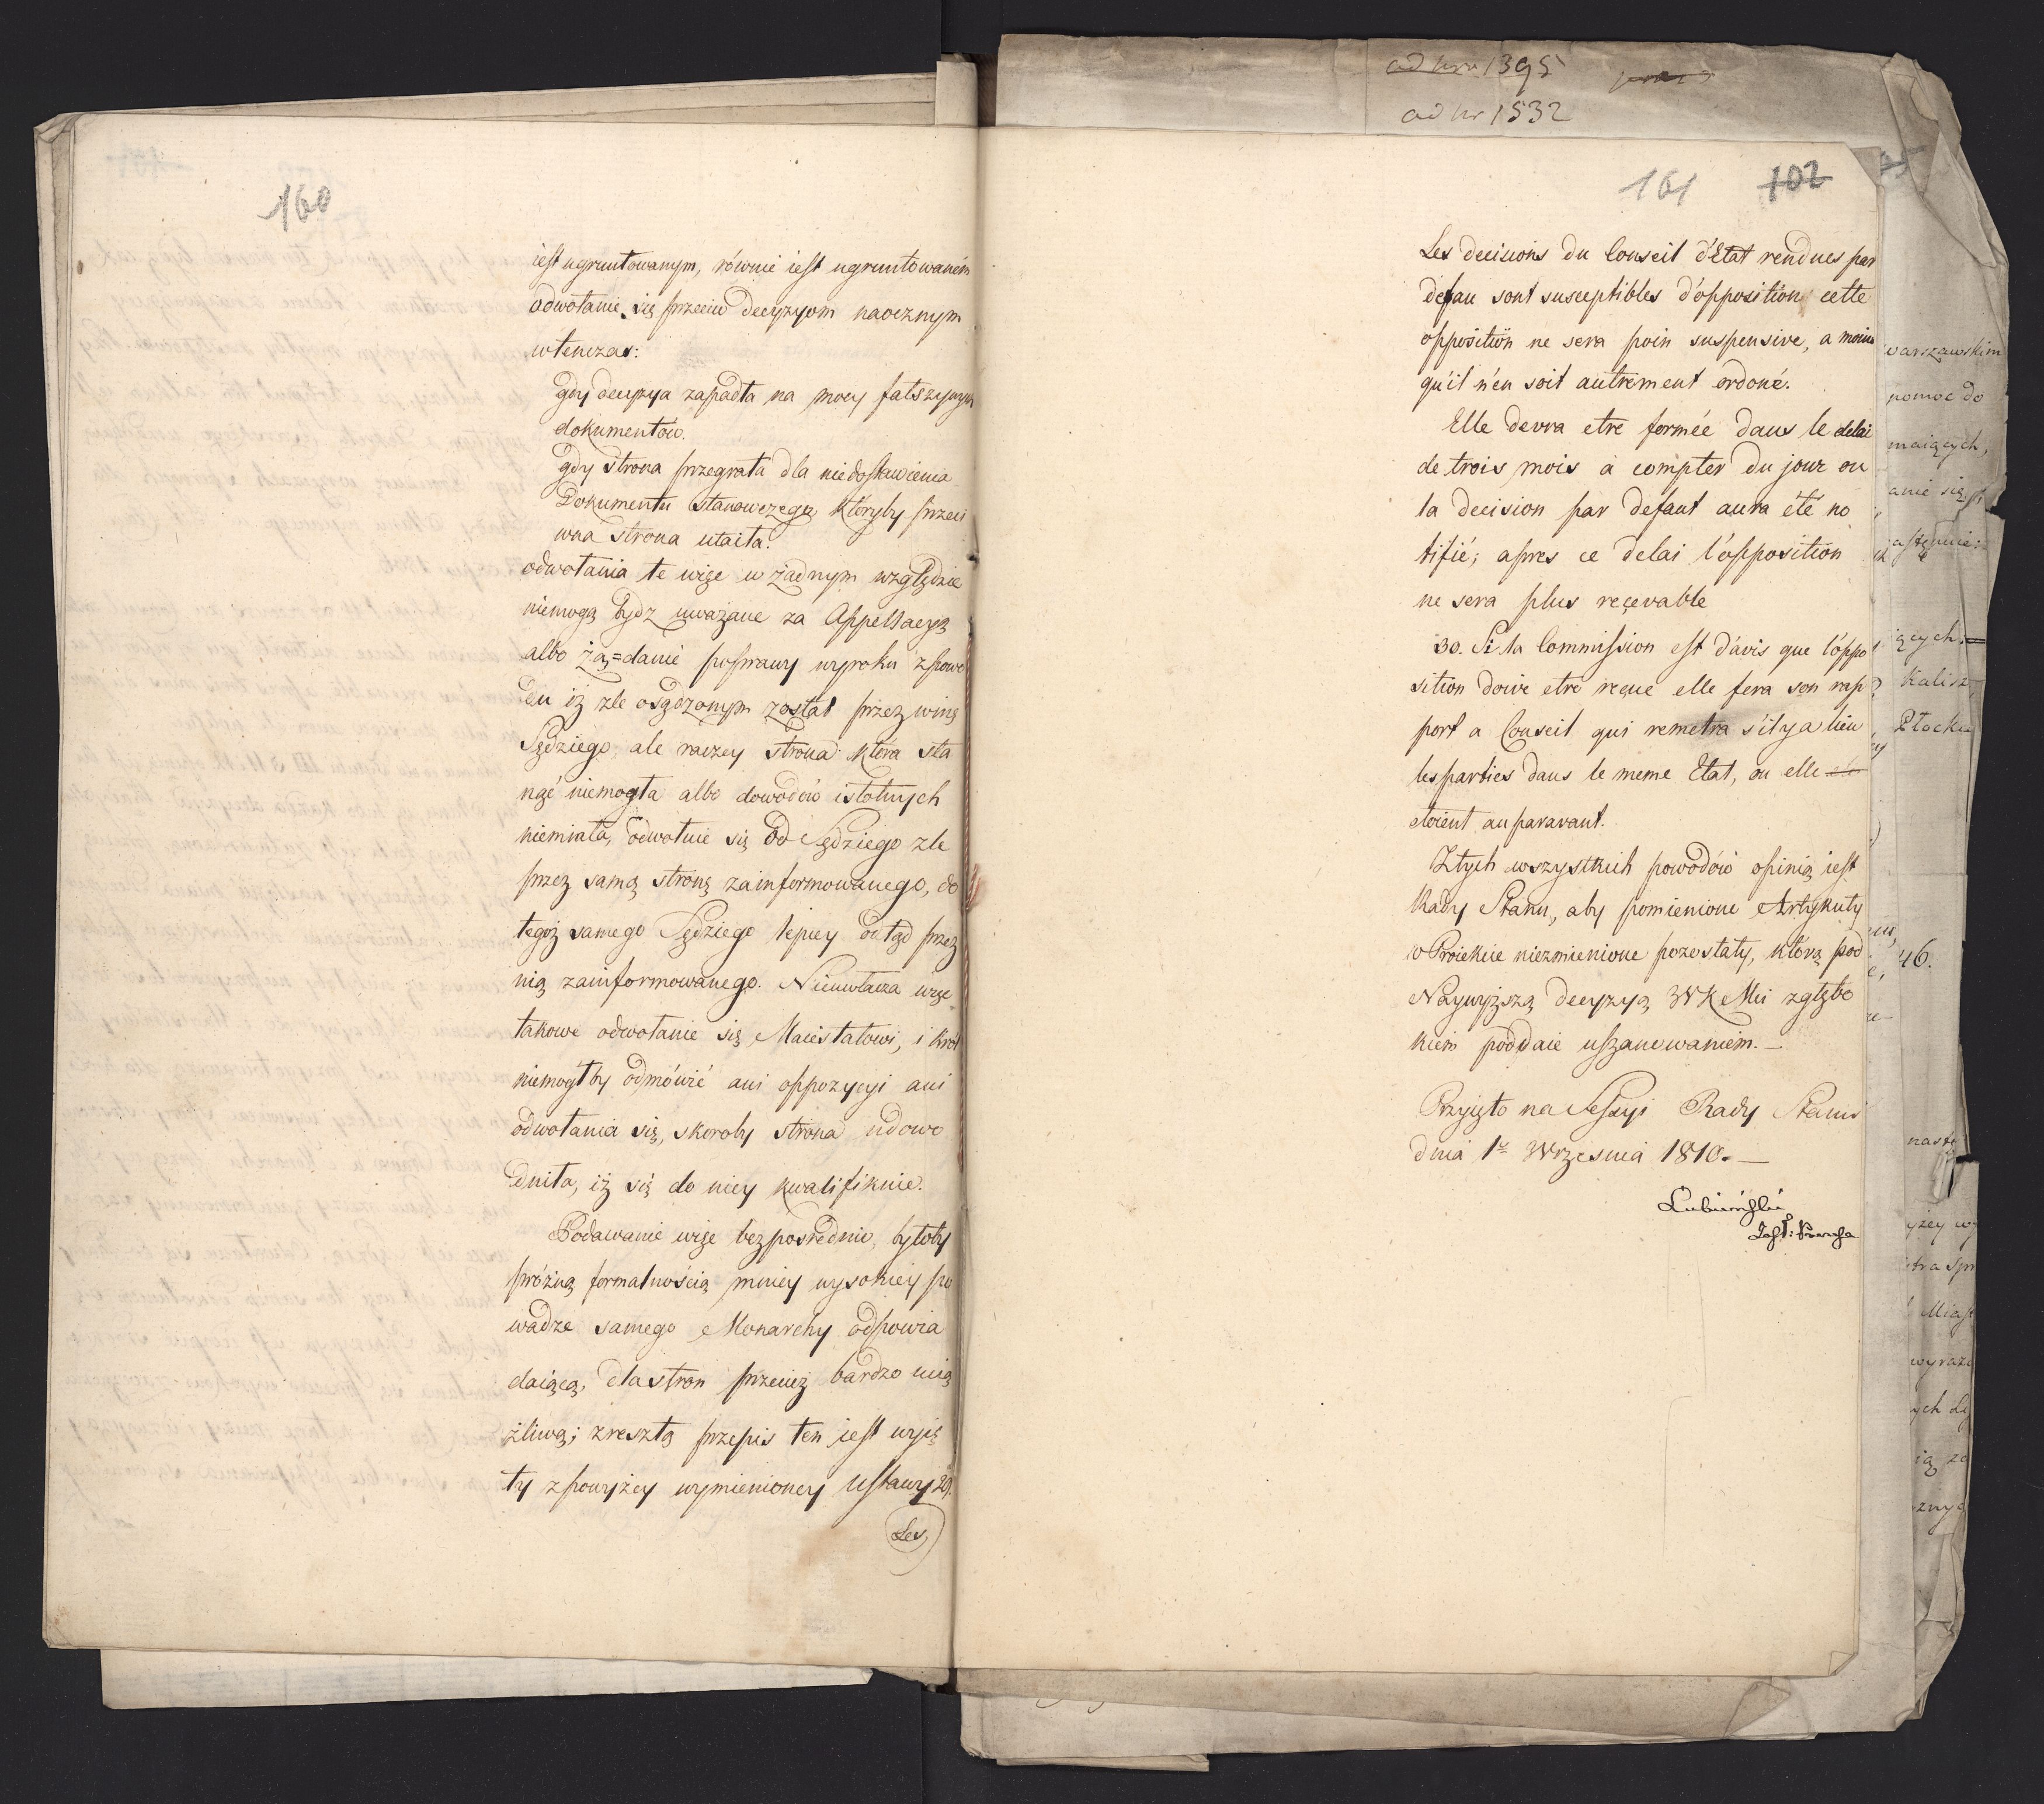 160
iest ugruntowanym, równie iest ugruntowaném
odwołanie się przeciw decyzyom naocznym
wtenczas:
gdy decyzya zapadła na mocy fałszywych
dokumentów.
gdy strona przegrała dla niedostawienia
Dokumentu stanowczego, któryby przeci
wna strona utaiła.
odwołania te więc w żadnym względzie
niemogą bydz uważane za Appellacyą
albo żą=danie poprawy wyroku z powo
du iż zle osądzonym został przez winę
Sędziego, ale raczey strona która sta
nąć niemogła albo dowodów istotnych
niemiała, odwołuie się od Sędziego zle
przez samą stronę zainformowanego, do
tegoż samego Sędziego lepiey odtąd przez
nią zainformowanego. Nieuwłacza więc
takowe odwołanie się Maiestatowi, i Król
niemogłby odmówić ani oppozycyi ani
odwołania się, skoroby strona udowo
dniła, iż się do niey kwalifikuie.
Podawanie więc bezpośrednio, byłoby
próżną formalnością mniey wysokiey po
wadze samego Monarchy odpowia
daiącą, dla stron przeciez bardzo ucią
żliwą; zresztą przepis ten iest wyię
ty z powyżey wymienioney Ustawy 29.
Les
ad nru 1395
ad nr 1532
161 102
Les decisions du Conseil d'Etat rendues par
defau sont susceptibles d'opposition cette
opposition ne sera poin suspensive, a moins
qu'il n'en soit autrement ordoné.
Elle devra etre formée dans le delai
de trois mois à compter du jour ou
la decision par defaut aura été no
tifié; apres ce delai l'opposition
ne sera plus reçevable
30. Si la Commission est d'avis que l'oppo
sition doive etre reçue elle fera son rap
port a Conseil qui remetra s'il y a lieu
les parties dans le meme Etat, ou elle
etoient auparavant.
Z tych wszystkich powodów opinią iest
Rady Stanu, aby pomienione Artykuły
w Proiekcie niezmienione pozostały, którą pod
Naywyższą decyzyą WKMci z głębo
kiem poddaie uszanowaniem. —
Przyięto na Sessyi Rady Stanu
dnia 1o Września 1810. —
Lubieński
Zast: Prezesa
warszawskim
pomoc do
maiących,
anie się
astępnie:
iących.
Kalisz
Płocku
46.
nastę
yżey wy
tra Spr
Miast
wyraza
ych
ią za
znyc